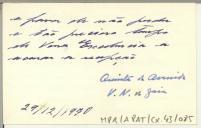 o favor de não perder
o tão precioso tempo
de Vossa Excelência a
acusar a recepção
Quinta de
V. N. de Gaia
29/12/1970
MPR/APAT/Cx.43/085